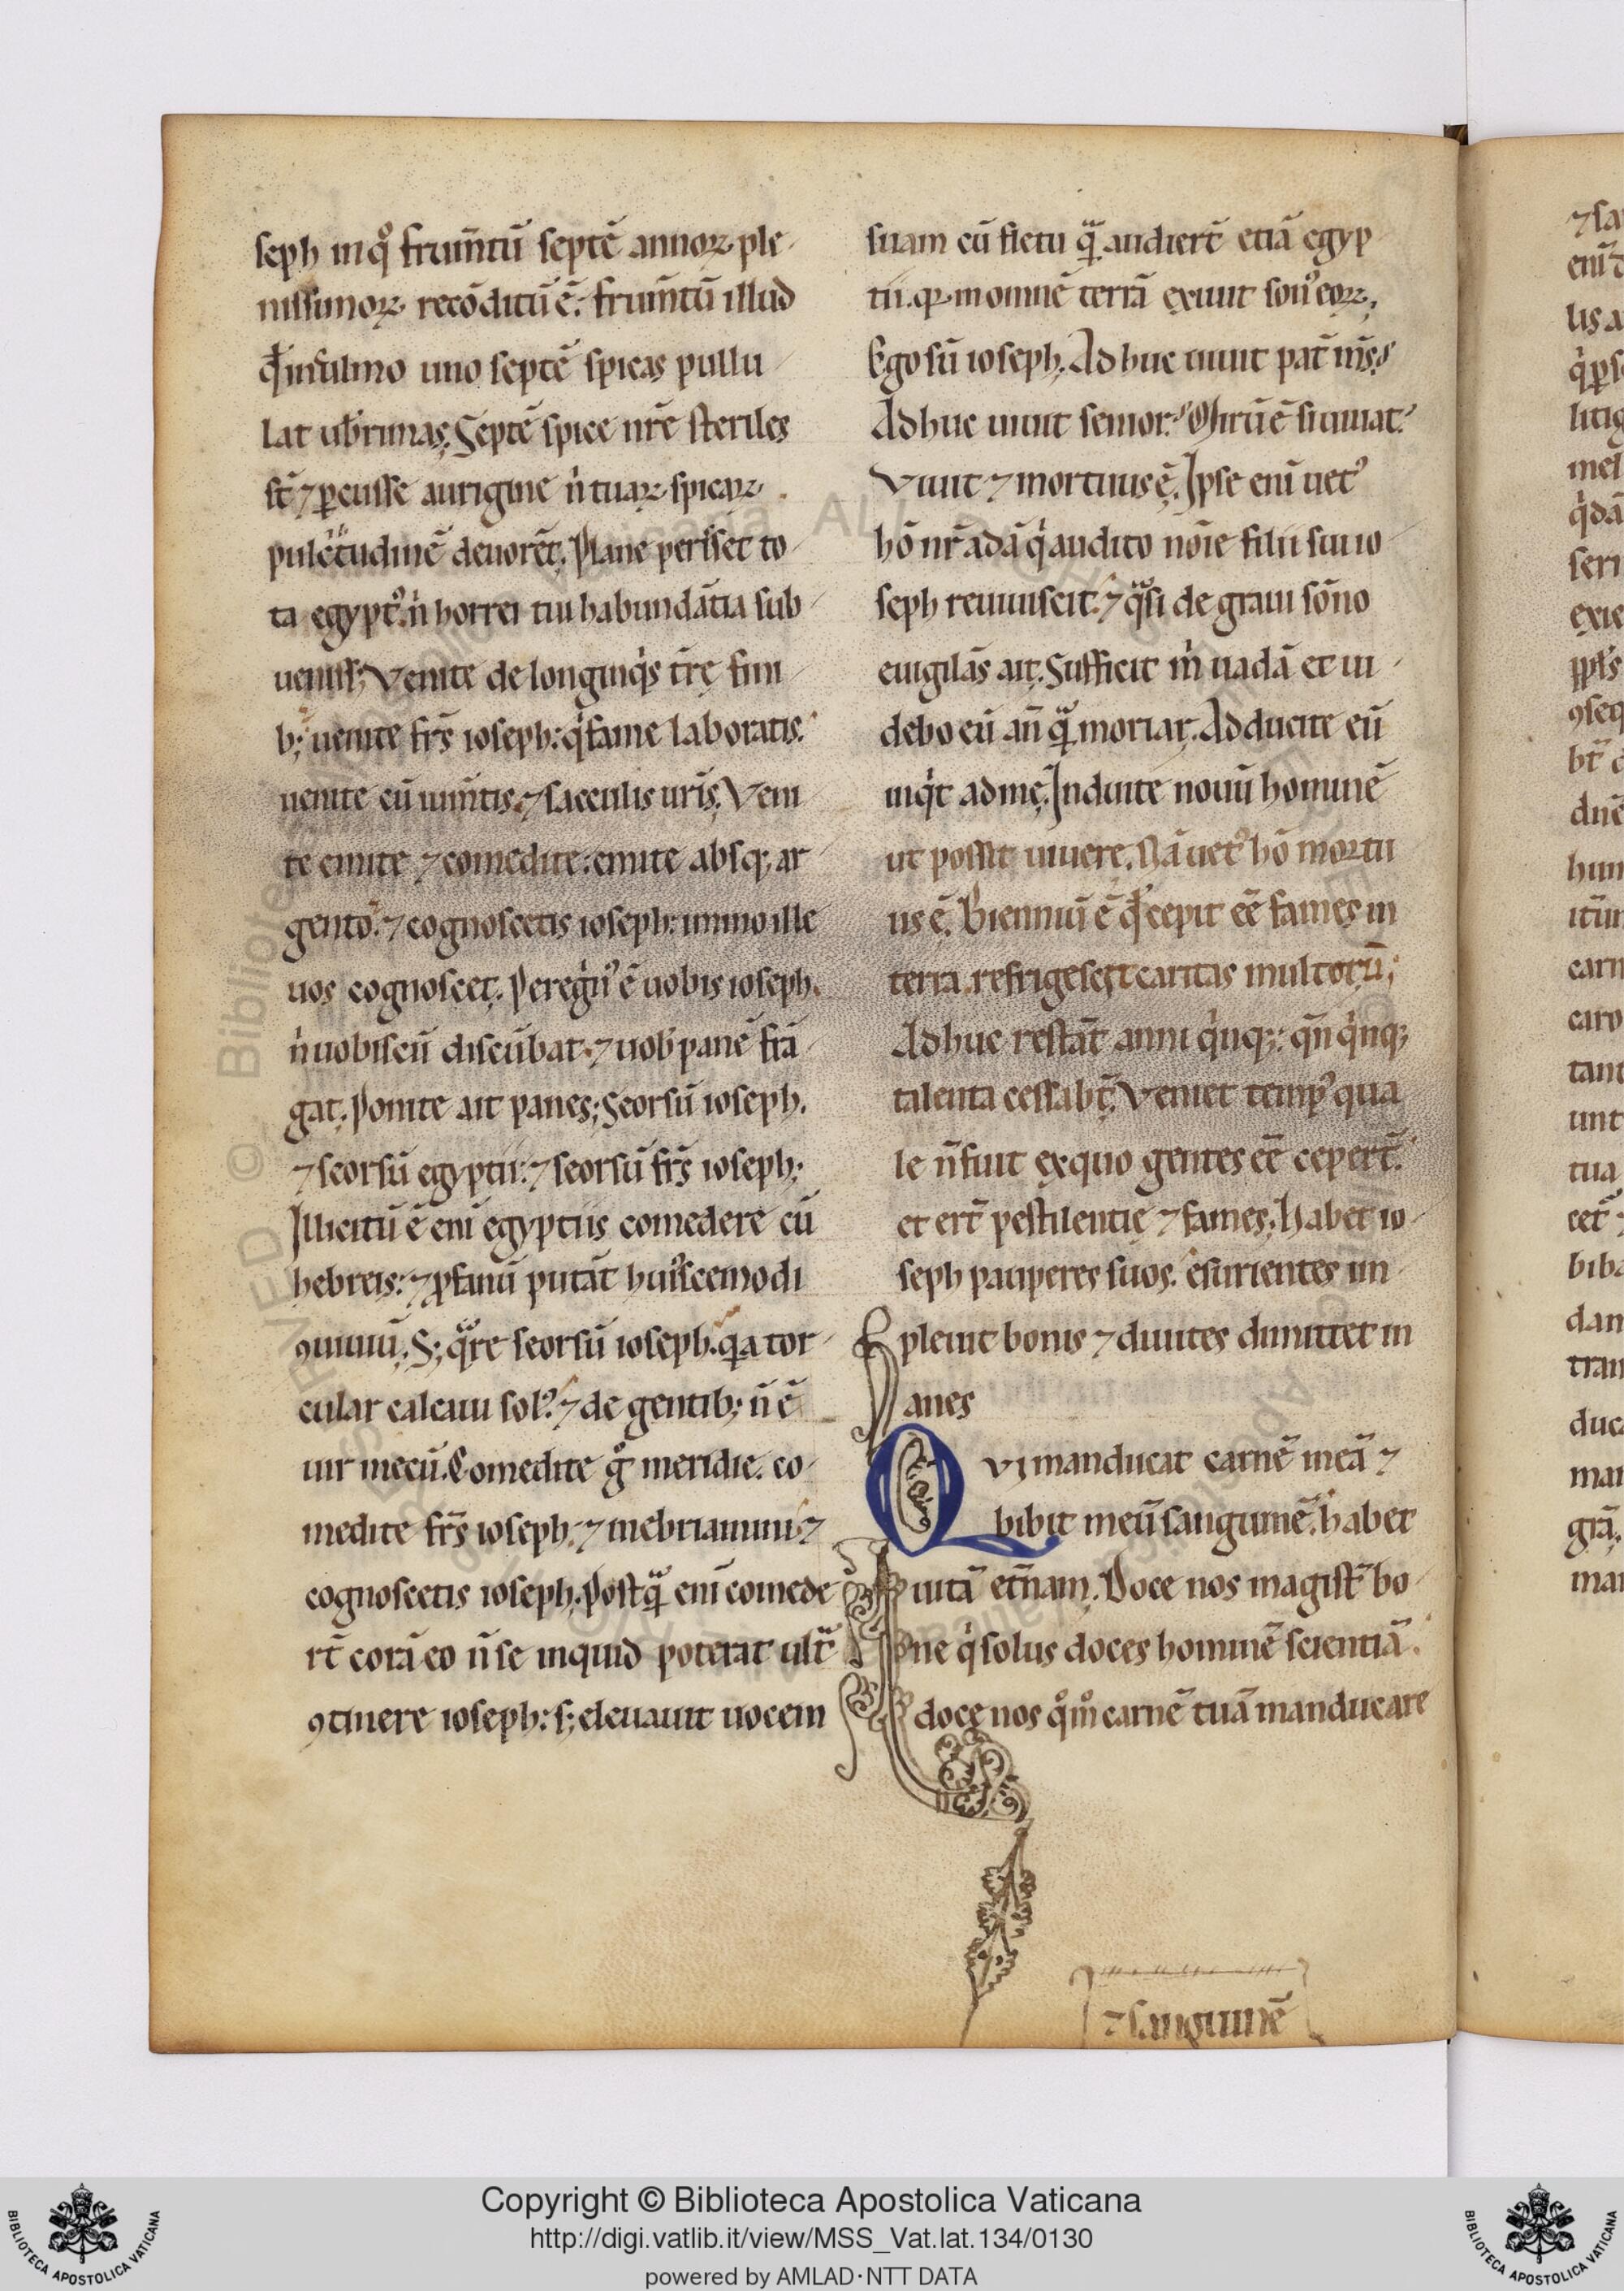 seph in qͦ frum̄tū septē annoꝝ ple
nissimoꝝ recōditū ē: frum̄tū illud
qd̄ in culmo uno septē spicas pullu
lat ub̓rimas. Septē spice nr̄e steriles
st̄ ⁊ ꝑcusse aurigine n̓ tuaꝝ spicaꝝ
pulc̓tudinē deuorēt. Plane perisset to
ta egypt᷒. n̓ horrei tui habundātia sub
uenisſ; Venite de longinq̓s tr̄ę fini
b; uenite fr̄s ioseph: q̓ fame laboratis.
uenite cū ium̄tis. ⁊ sacculis ur̄is. Veni
te emite ⁊ comedite: emite absq; ar
gento. ⁊ cognoscetis ioseph: immo ille
uos cognoscet. Peregͥn᷒ ē uobis ioseph.
n̓ uobiscū discūbat. ⁊ uob̓ panē frā
gat. Ponite ait panes; Seorsū ioseph.
⁊ seorsū egyptii: ⁊ seorsū fr̄s ioseph;
Illicitū ē eni̅ egyptiis comedere cū
hebreis: ⁊ ꝓfanū putāt hui᷒scemodi
ꝯuiuiū. S; qᷓre seorsū ioseph. qꝛ a tor
cular calcaui sol᷒. ⁊ de gentib; n̄ ē
uir mecū. Comedite gͦ meridie. co
medite fr̄s ioseph. ⁊ inebriamini ⁊
cognoscetis ioseph. Postqᷓ eni̅ comede
rt̄ corā eo n̄ se inquid poterat ult̓
ꝯtinere ioseph: s; eleuauit uocem
suam cū fletu qᷓ audiert̄ etiā egyp
tii. qꝛ in omnē terrā exiuit son᷒ eoꝝ;
Ego sū ioseph. Adhuc uiuit pat̄ m̄s.
Adhuc uiuit senior. Miꝝ ē si uiuat.
Viuit ⁊ mortuus ē. Ipse eni̅ uet᷒
hō nr̄ adā q̓ audito nōie filii sui io
seph reuiuiscit. ⁊ qᷓsi de graui sōno
euigilās ait. Sufficit m̓ uadā et ui
debo eū an̄ qᷓ moriar. Adducite eū
inq̓t ad me. Induite nouū hominē
ut possit uiuere. Nā uet᷒ hō mortu
us ē. Bienniū ē qd̄ cepit eē̄ fames in
terra. refrigescit caritas multorū;
Adhuc restāt anni q̓nq;: qn̄ q̓nq;
talenta cessabt̄. Veniet temp᷒ qua
le n̄ fuit ex quo gentes eē̄ cepert̄.
et ert̄ pestilentię ⁊ fames. Habet io
seph pauperes suos. esurientes im
pleuit bonis ⁊ diuites dimittet in
anes
QVI manducat carnē meā ⁊
bibit meū sanguinē. habet
uitā et̄nam. Doce nos magist̄ bo
ne q̓ solus doces hominē scientiā.
doce nos qͦm̊ carnē tuā manducare
⁊ sanguinē
⁊ sa
Copyright © Biblioteca Apostolica Vaticana
http://digi.vatlib.it/view/MSS_Vat.lat.134/0130
powered by AMLAD·NTT DATA
BIBLIOTECA APOSTOLICA VATICANA
BIBLIOTECA APOSTOLICA VATICANA